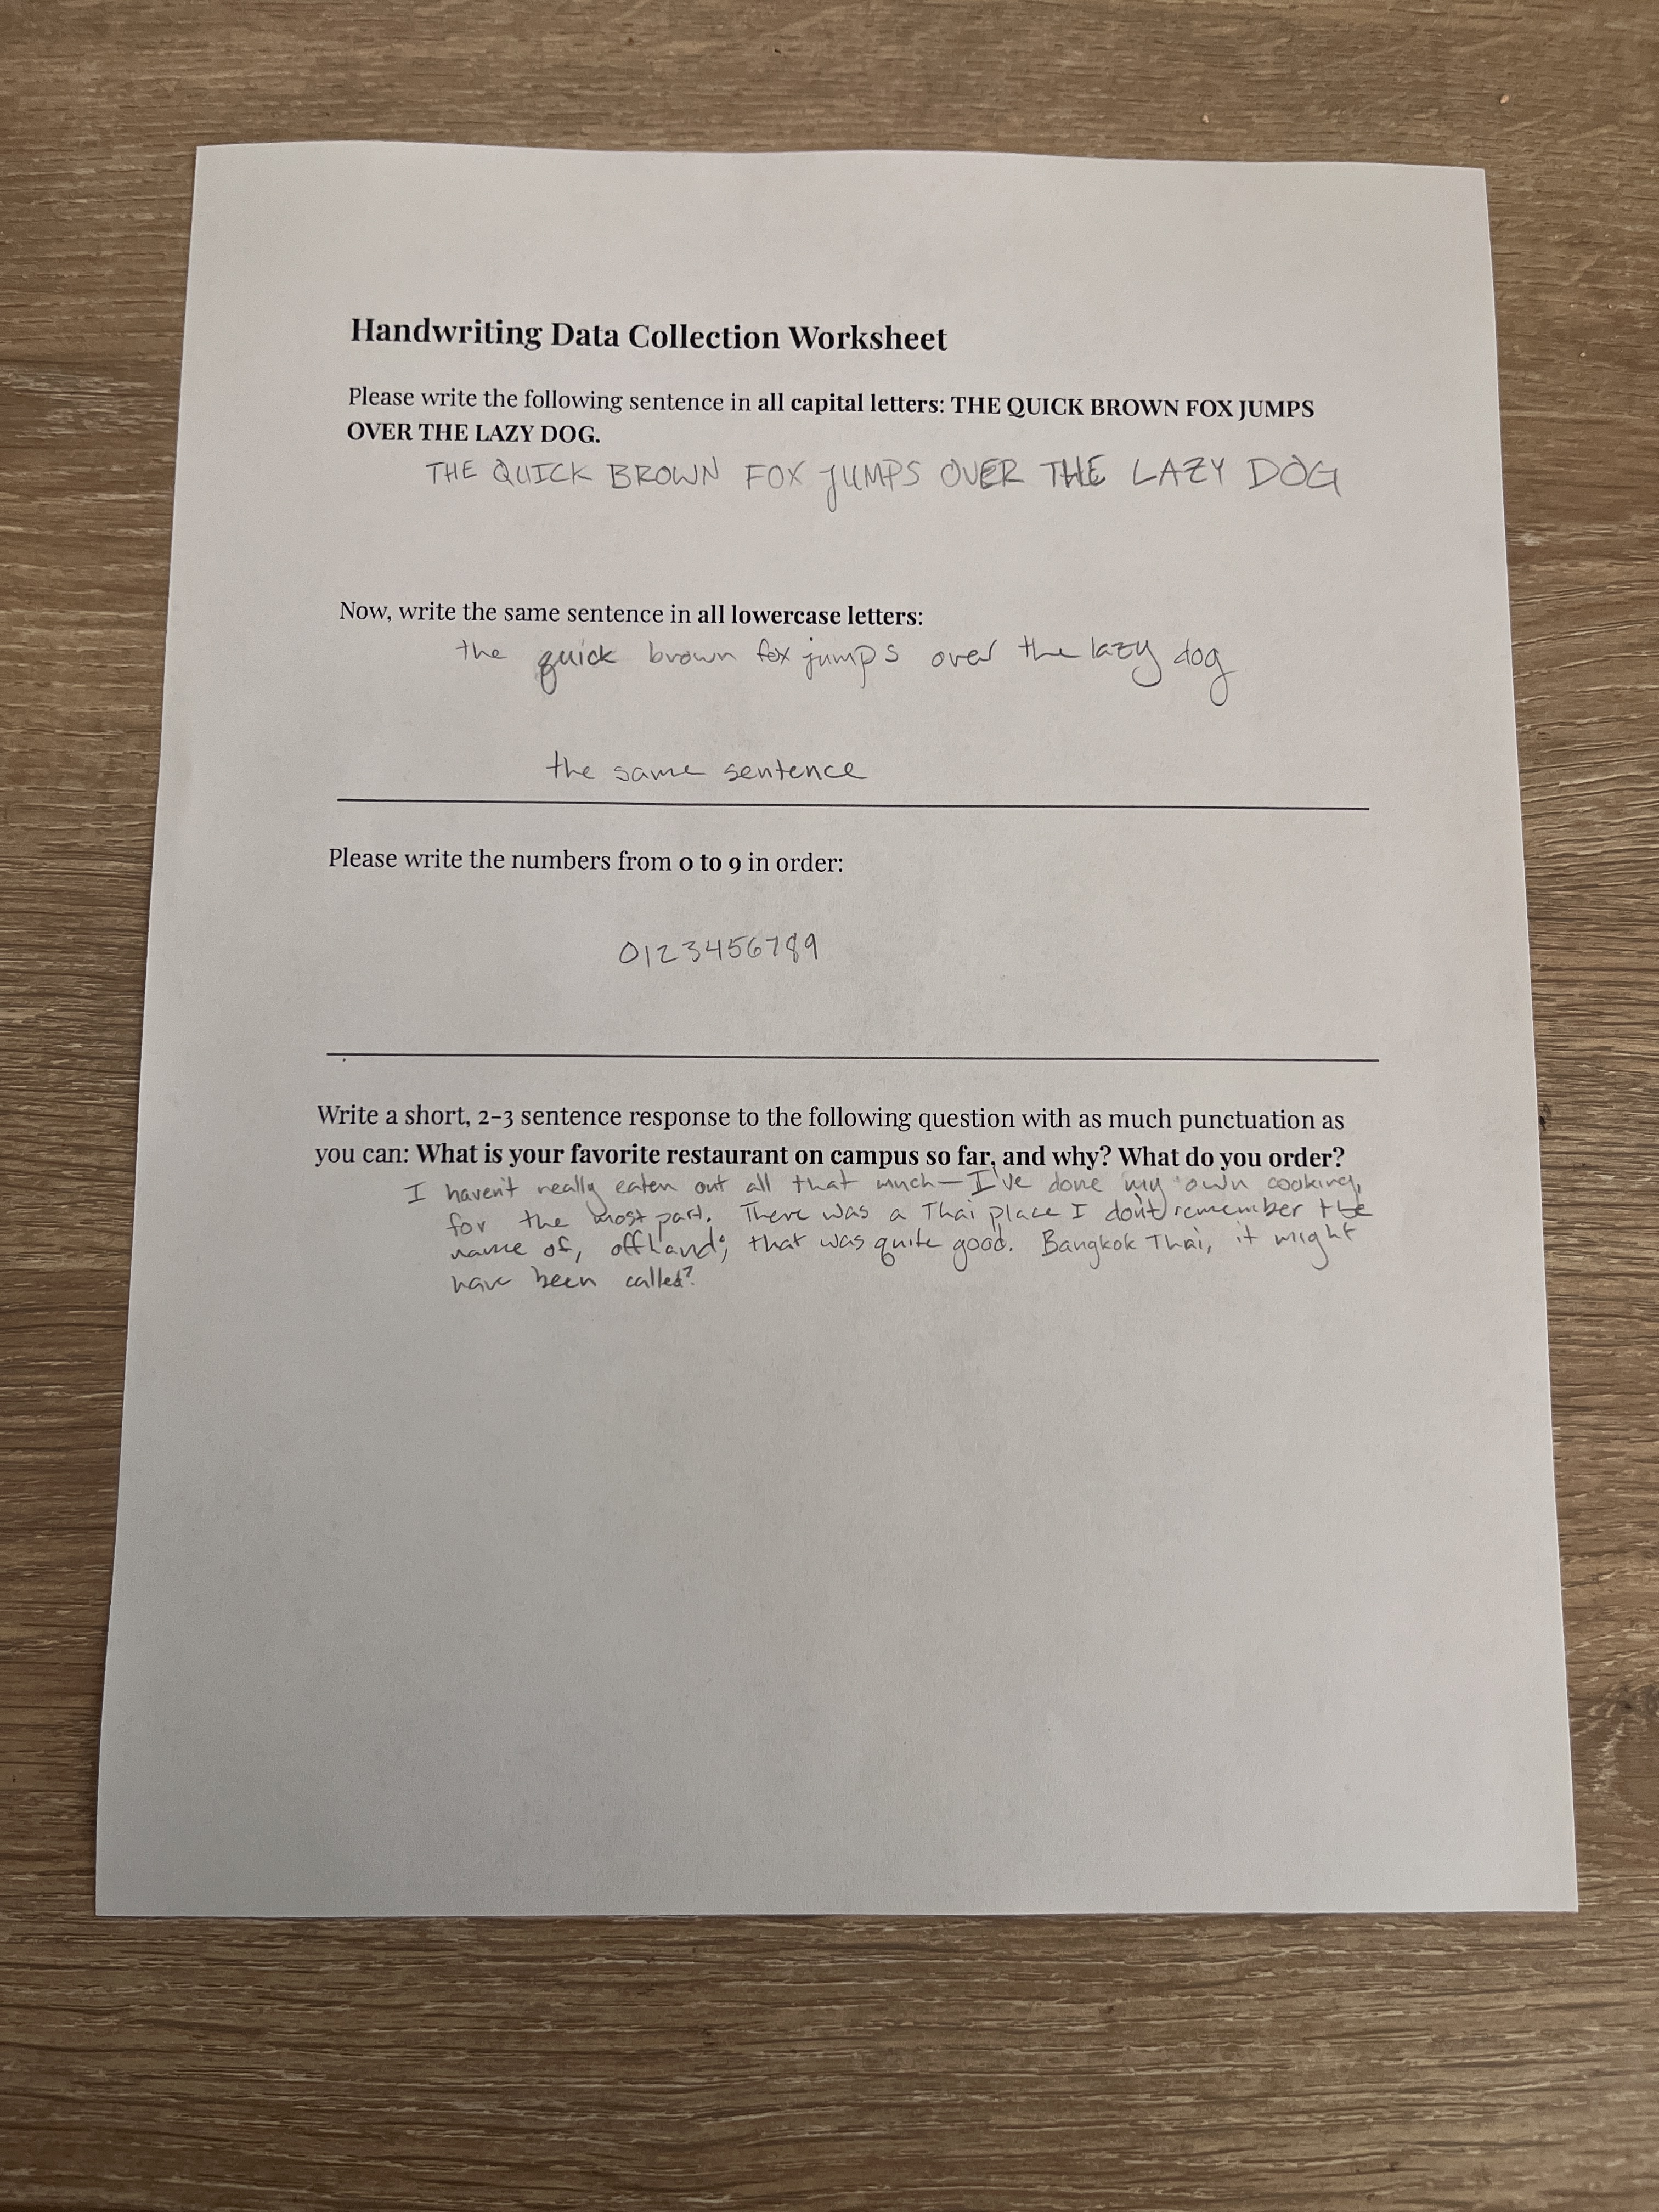 Handwriting Data Collection Worksheet
Please write the following sentence in all capital letters: THE QUICK BROWN FOX JUMPS
OVER THE LAZY DOG.
THE QUICK BROWN FOX JUMPS OVER THE LAZY DOG
Now, write the same sentence in all lowercase letters:
the quick brown fox jumps over the lazy dog
the same sentence
Please write the numbers from 0 to 9 in order:
0123456789
Write a short, 2-3 sentence response to the following question with as much punctuation as
you can: What is your favorite restaurant on campus so far, and why? What do you order?
I haven't really eaten out all that much—I've done my own cooking,
for the most part. There was a Thai place I don't remember the
name of, offhand; that was quite good. Bangkok Thai, it might
have been called?